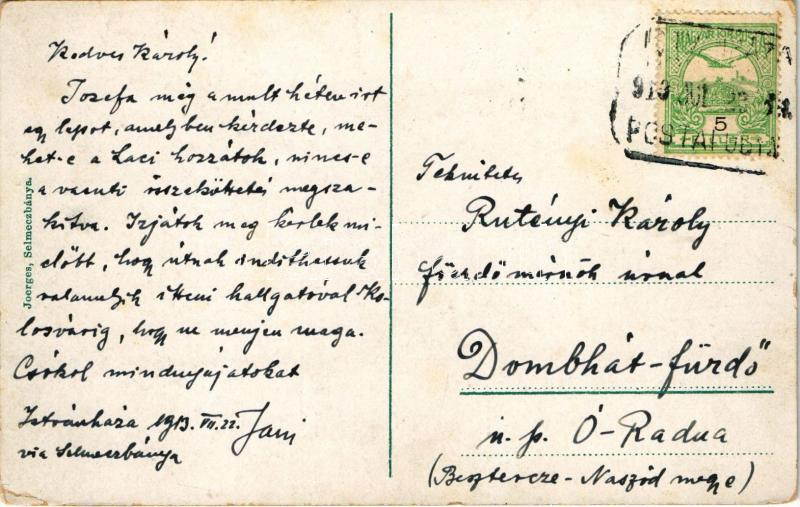 Kedves Károly!
Jozefa még a mult héten irt
egy lapot, amelyben kérdezte, me-
het-e a Laci hozzátok, nincs-e
a vasuti összeköttetés megsza-
kitva. Irjátok meg kérlek mi-
előbb, hogy útnak indithassuk
valamelyik itteni hallgatóval Ko-
losvárig, hogy ne menjen maga.
Csókol mindnyájatokat
Jani
Istvánháza 1913. VII. 22.
via Selmeczbánya
Joerges, Selmeczbánya.
MAGYAR KIR. POSTA
5
913 JUL
Tekintetes
Rutényi Károly
fürdőmérnök úrnak
Dombhát-fürdő
u. p. Ó-Radna
(Besztercze-Naszód megye)